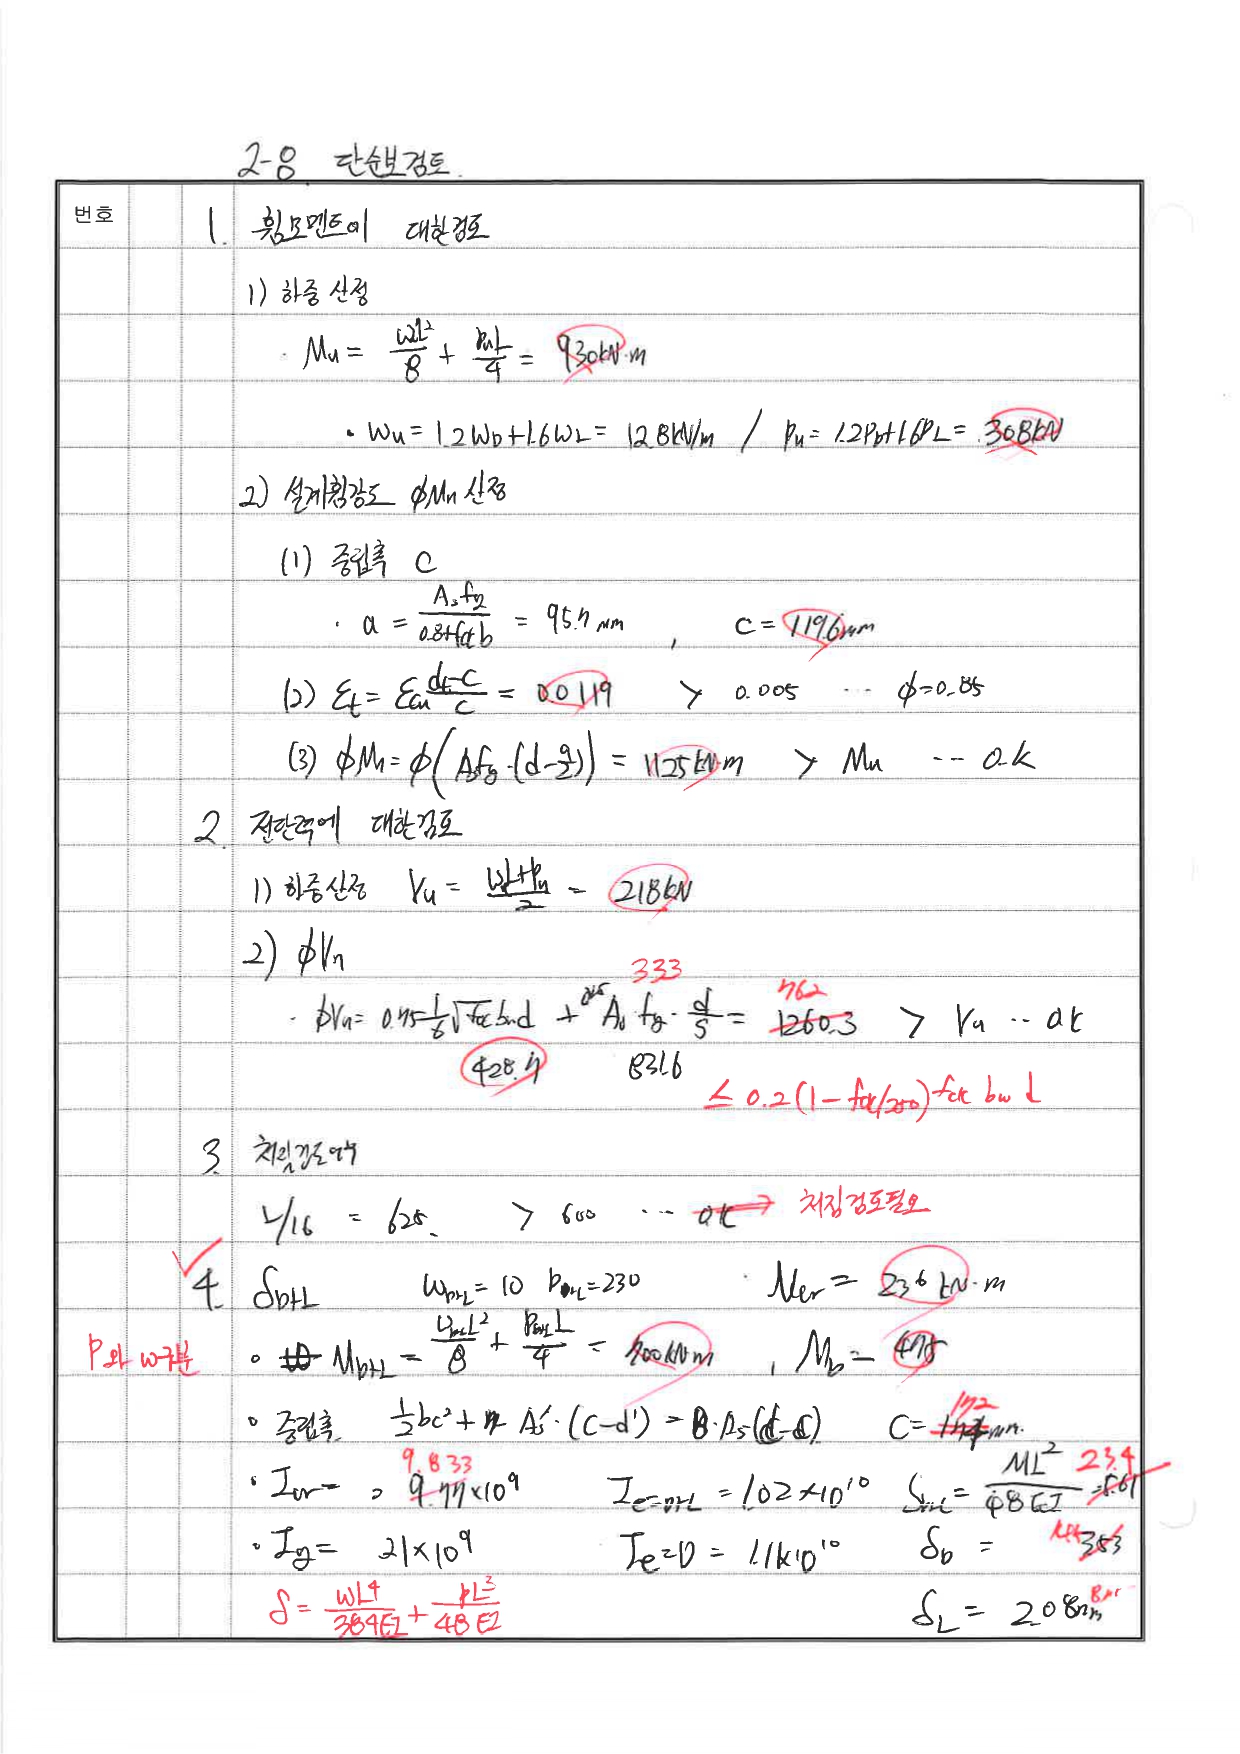 2-8 단순보검토.
번호
1. 휨모멘트에 대한검토
1) 하중 산정
· Mu = wl²/8 + PuL/4 = 930kN·m
· Wu = 1.2WD+1.6WL = 12.8kN/m / Pu = 1.2PD+1.6PL = 308kN
2) 설계휨강도 ϕMn 산정
(1) 중립축 C
· a = As fy / 0.85fck b = 95.7mm , C = 119.6mm
(2) εt = εcu (dt-c)/c = 0.0119 > 0.005 ··· ϕ=0.85
(3) ϕMn = ϕ(Asfy·(d-a/2)) = 1125kN·m > Mu ··· O.K
2. 전단력에 대한검토
1) 하중산정 Vu = (wl+Pu)/2 = 218kN
2) ϕVn
333
762
· ϕVn = 0.75 1/6 √fck bwd + 0.75 Av fy · d/s = 1260.3 > Vu ·· OK
428.7 831.6
≤ 0.2(1-fck/250)fck bw d
3. 처짐검토여부
L/16 = 625. > 600 ··· OK → 처짐검토필요
4. δD+L WD+L = 10 PD+L = 230 · Mcr = 236 kN·m
P와 w구분
· MD+L = WD+L L²/8 + PD+L L/4 = 700kN·m , MD = 475
172
· 중립축 1/2bc² + n As'·(C-d') = 8·As(d-c) C = mm.
9.833
23.4
· Icr = 9.77×10⁹ Ie=D+L = 1.02×10¹⁰ δD+L = ML²/48EI = 5.61
· Ig = 21×10⁹ Ie=D = 1.1×10¹⁰ δD = 3.53
δ = wL⁴/384EI + PL³/48EI
δL = 2.08mm